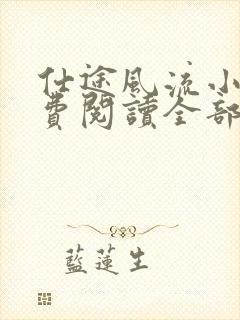 仕途風流小
費閱讀全部
藍蓮生